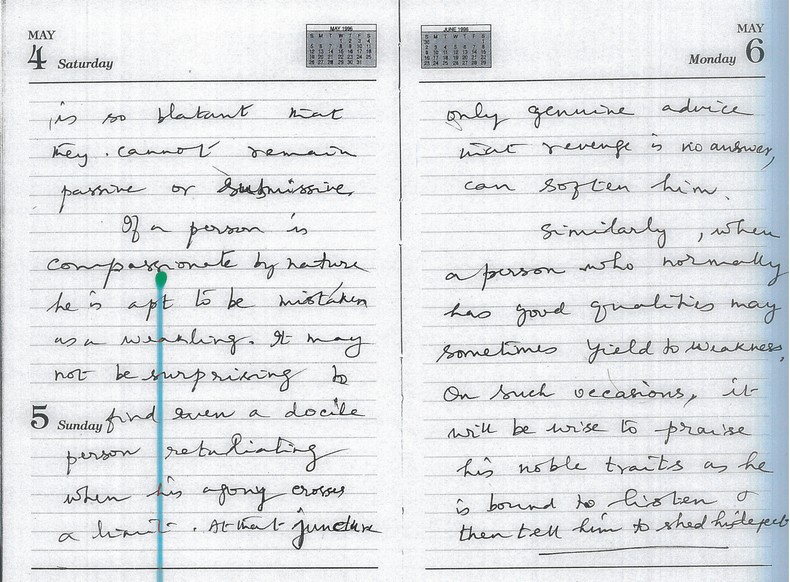 MAY
4 Saturday
MAY 1996
is so blatant that
they cannot remain
passive or submissive.
If a person is
compassionate by nature
he is apt to be mistaken
as a weakling. It may
not be surprising to
5 Sunday find even a docile
person retaliating
when his agony crosses
a limit. At that juncture
JUNE 1996
MAY
Monday 6
only genuine advice
that revenge is no answer,
can soften him.
Similarly, when
a person who normally
has good qualities may
sometimes yield to weakness,
On such occasions, it
will be wise to praise
his noble traits as he
is bound to listen &
then tell him to shed his defect